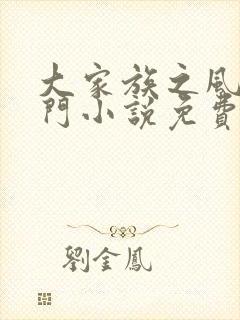 大家族之風
門小說免費
劉金鳳